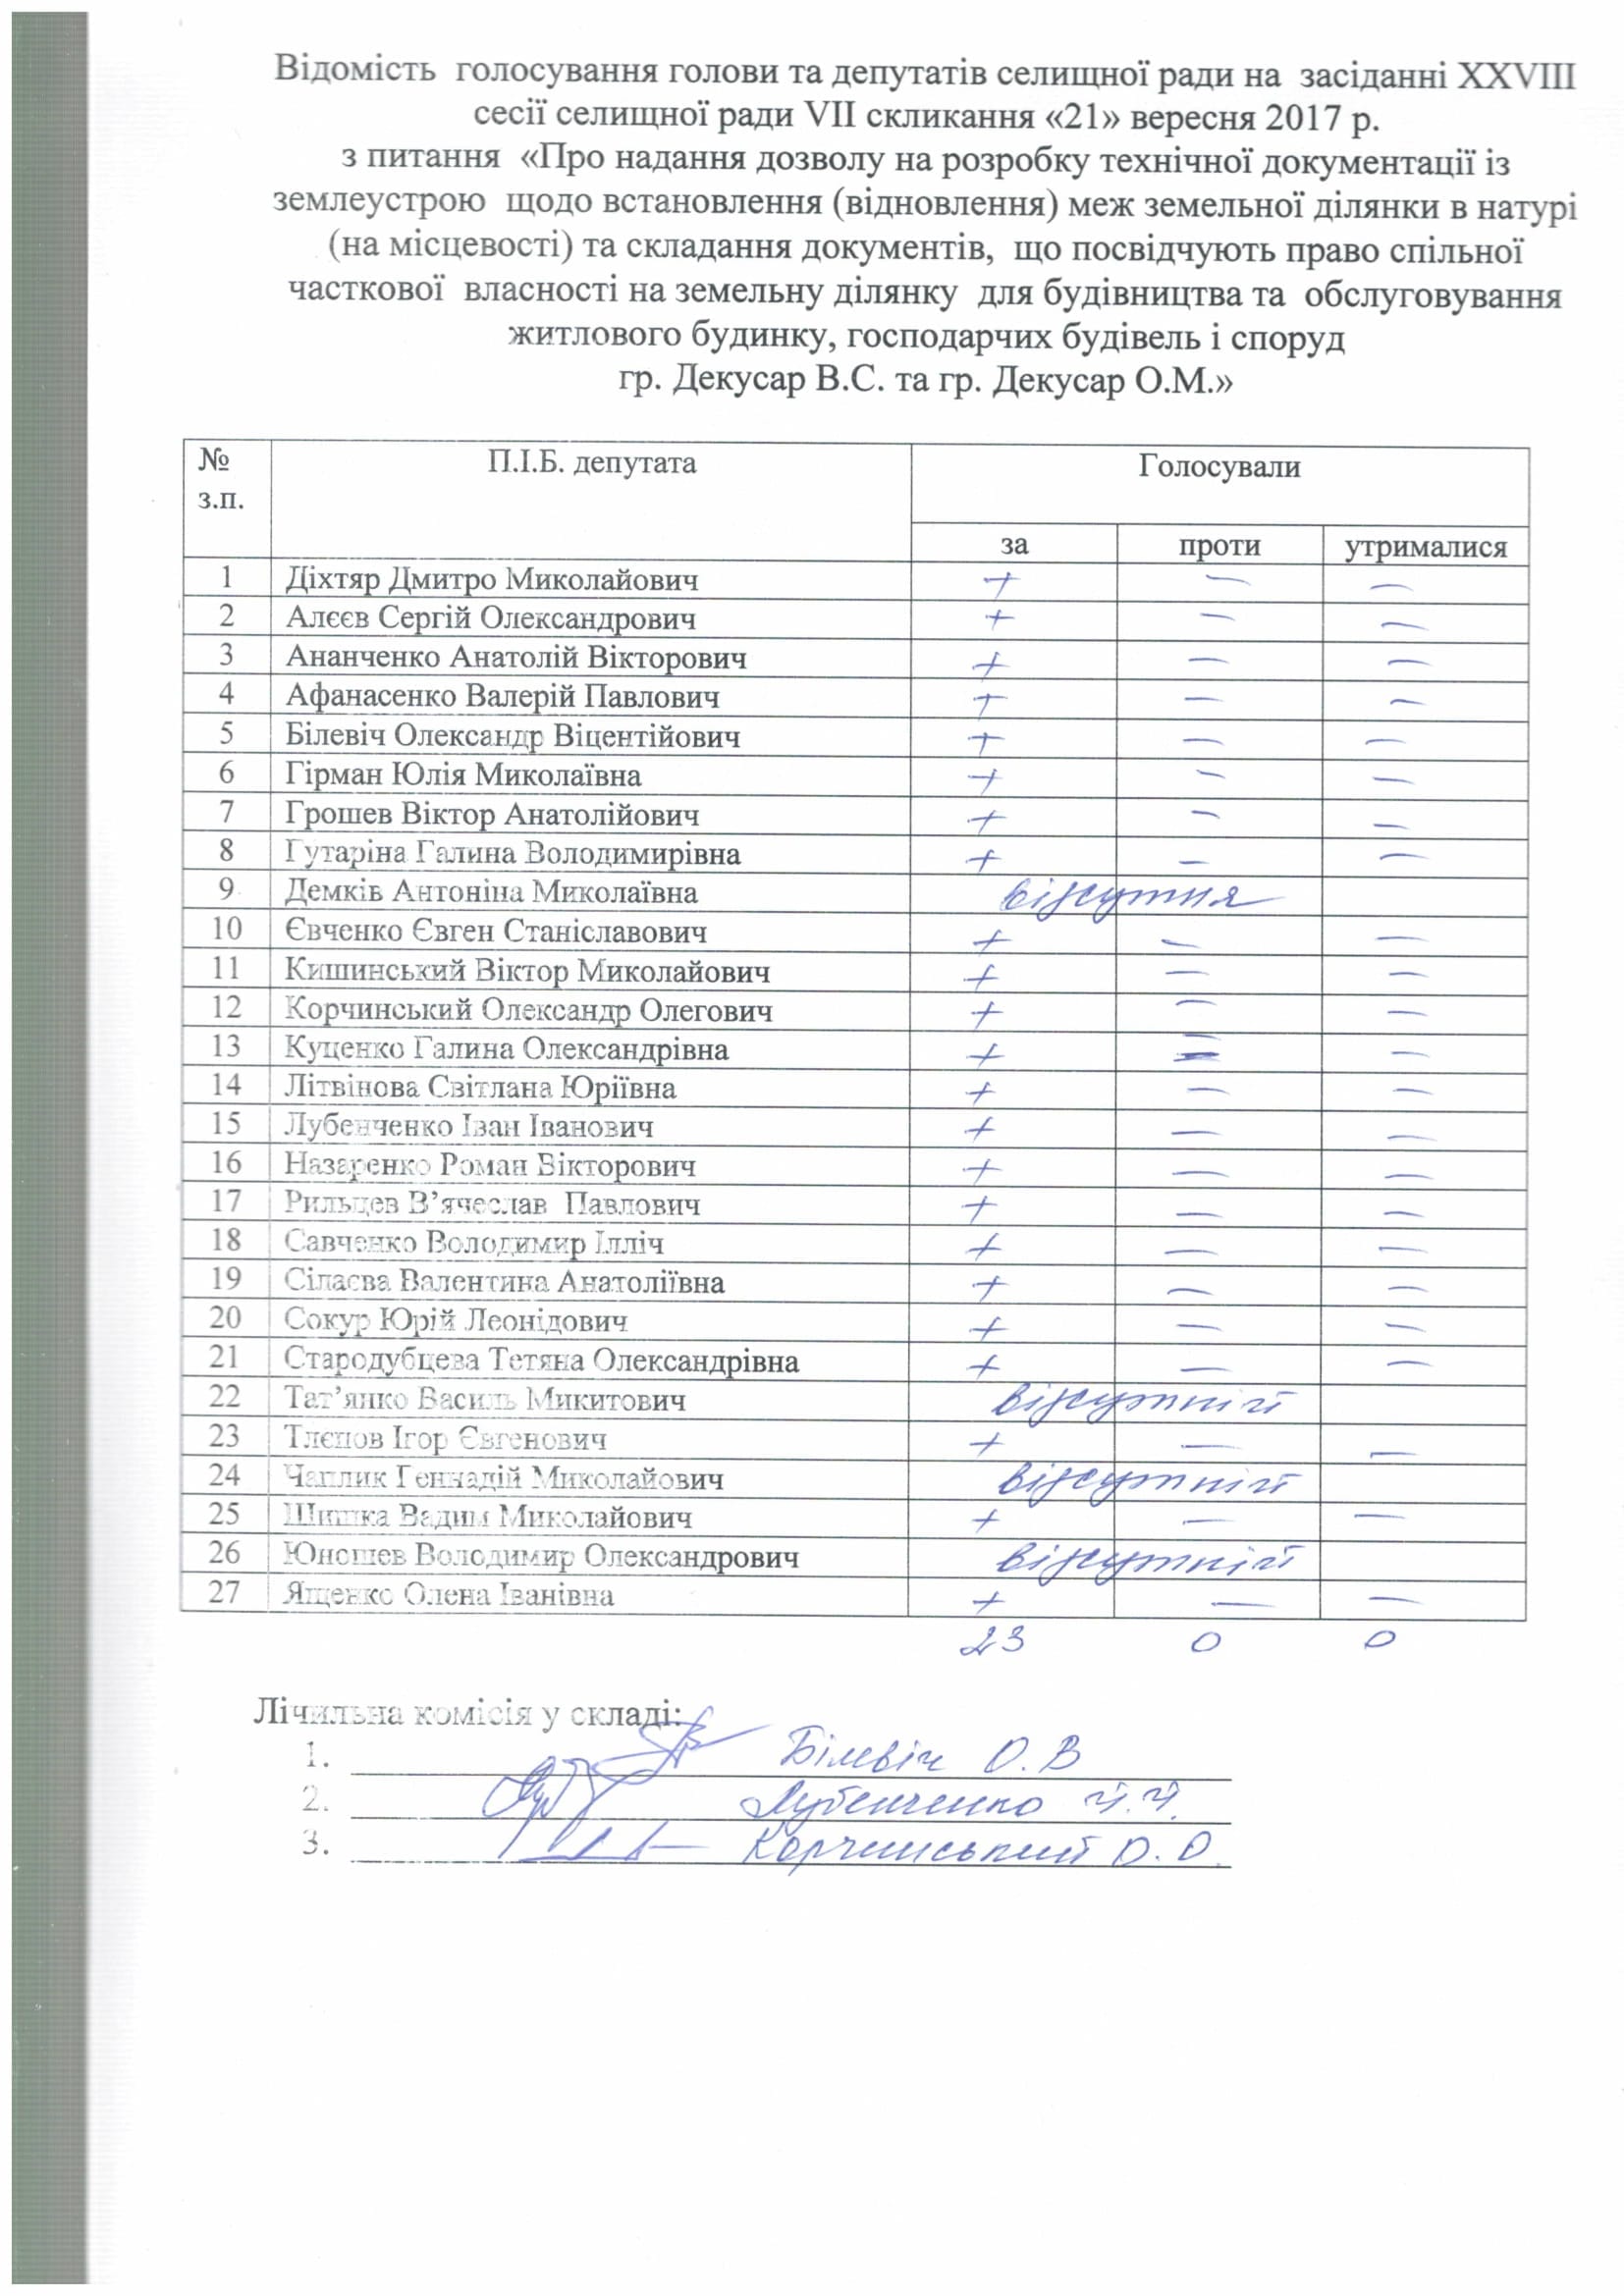 Відомість голосування голови та депутатів селищної ради на засіданні XXVIII
сесії селищної ради VII скликання «21» вересня 2017 р.
з питання «Про надання дозволу на розробку технічної документації із
землеустрою щодо встановлення (відновлення) меж земельної ділянки в натурі
(на місцевості) та складання документів, що посвідчують право спільної
часткової власності на земельну ділянку для будівництва та обслуговування
житлового будинку, господарчих будівель і споруд
гр. Декусар В.С. та гр. Декусар О.М.»
№ з.п. П.І.Б. депутата Голосували
за проти утрималися
1 Діхтяр Дмитро Миколайович + — —
2 Алєєв Сергій Олександрович + — —
3 Ананченко Анатолій Вікторович + — —
4 Афанасенко Валерій Павлович + — —
5 Білевіч Олександр Віцентійович + — —
6 Гірман Юлія Миколаївна + — —
7 Грошев Віктор Анатолійович + — —
8 Гутаріна Галина Володимирівна + — —
9 Демків Антоніна Миколаївна відсутня
10 Євченко Євген Станіславович + — —
11 Кишинський Віктор Миколайович + — —
12 Корчинський Олександр Олегович + — —
13 Куценко Галина Олександрівна + — —
14 Літвінова Світлана Юріївна + — —
15 Лубенченко Іван Іванович + — —
16 Назаренко Роман Вікторович + — —
17 Рильцев В’ячеслав Павлович + — —
18 Савченко Володимир Ілліч + — —
19 Сілаєва Валентина Анатоліївна + — —
20 Сокур Юрій Леонідович + — —
21 Стародубцева Тетяна Олександрівна + — —
22 Тат’янко Василь Микитович відсутній
23 Тлєпов Ігор Євгенович + — —
24 Чаплик Геннадій Миколайович відсутній
25 Шишка Вадим Миколайович + — —
26 Юношев Володимир Олександрович відсутній
27 Ященко Олена Іванівна + — —
23 0 0
Лічильна комісія у складі:
1. Білевіч О.В
2. Лубенченко І.І.
3. Корчинський О.О.